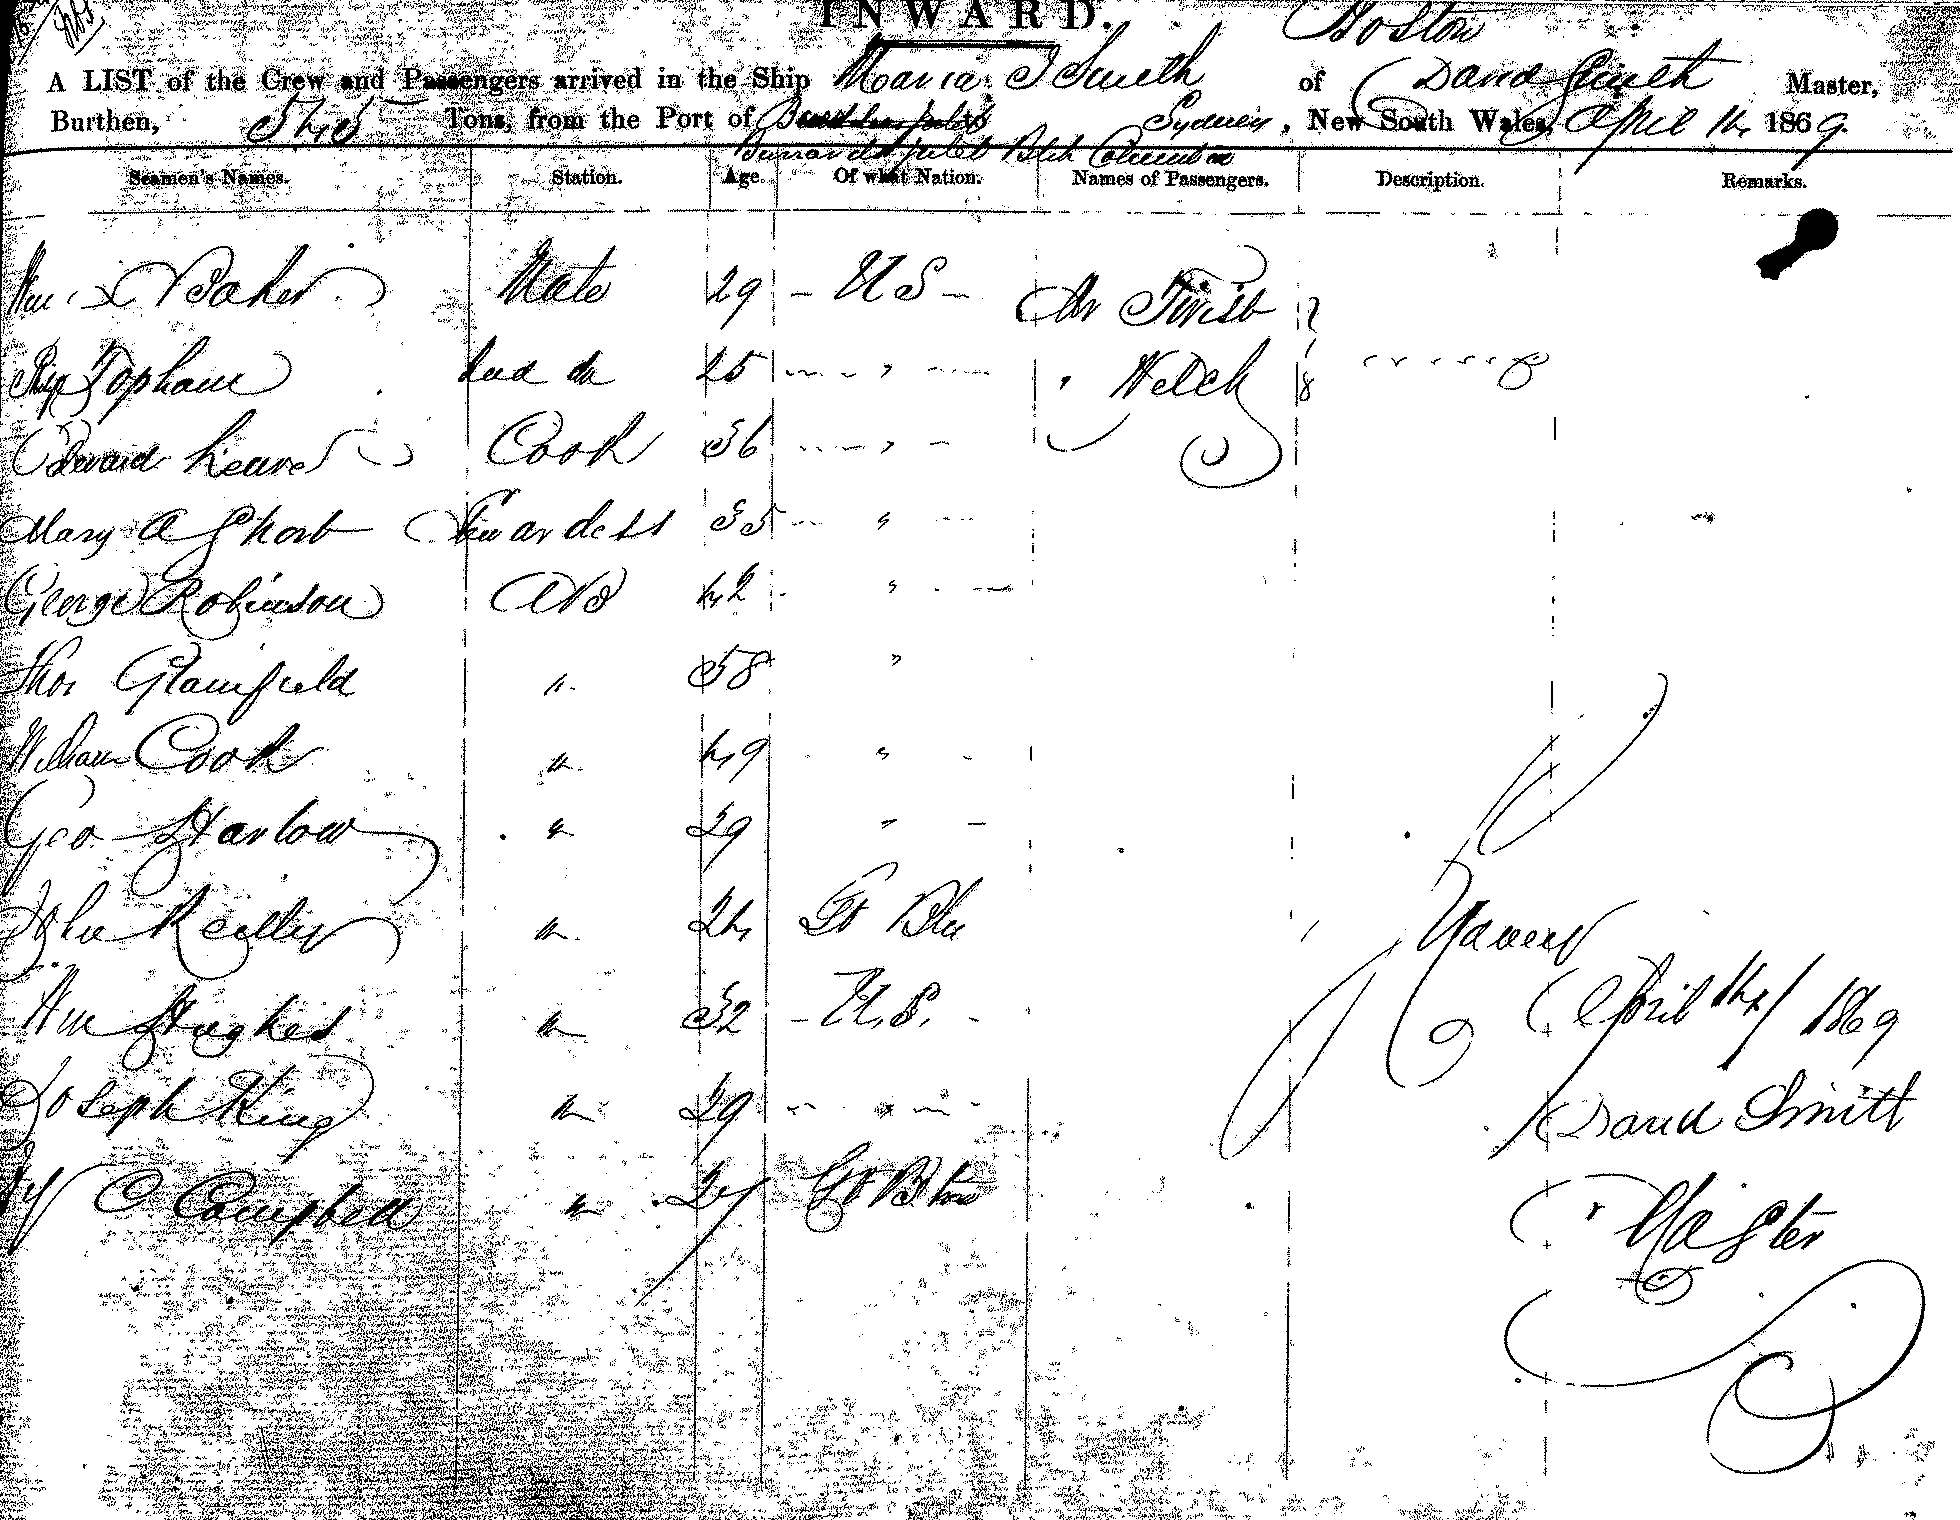 INWARD.
A LIST of the Crew and Passengers arrived in the Ship Maria J Smith of Boston David Smith Master,
Burthen, 545 Tons, from the Port of Sydney, New South Wales, April 14 1869.
Burrard Inlet Bth Columbia
Seamen's Names. Station. Age. Of what Nation. Names of Passengers. Description. Remarks.
Wm Baker Mate 29 - U S - Mr Twist
Topham 2nd do 25 " " Welch
Edward Cook 36 "
Mary A Short Stewardess 35 "
George Robinson AB 42 "
Thos Glamfield " 58 "
William Cook " 49 "
Geo Harlow " 29 "
John Reilley " 24 Gt Btn
Wm Hughes " 32 - U.S. -
Joseph King " 29 "
C. Campbell " 27 Gt Btn
April 14/ 1869
David Smith
Master